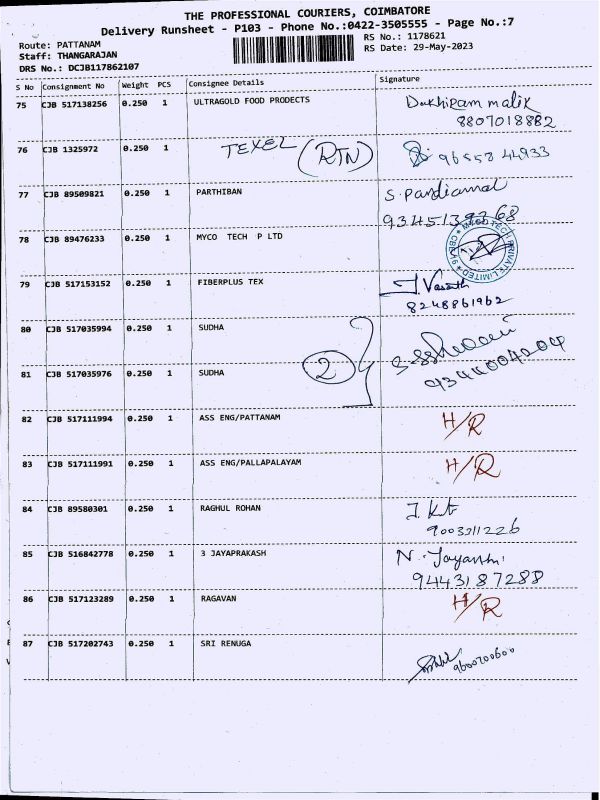 THE PROFESSIONAL COURIERS, COIMBATORE
Delivery Runsheet - P103 - Phone No.:0422-3505555 - Page No.:7
Route: PATTANAM
Staff: THANGARAJAN
DRS No.: DCJB117862107
RS No.: 1178621
RS Date: 29-May-2023
S No Consignment No Weight PCS Consignee Details Signature
75 CJB 517138256 0.250 1 ULTRAGOLD FOOD PRODECTS
8807018882
76 CJB 1325972 0.250 1 TEXEL (RTN) 96553 44933
77 CJB 89509821 0.250 1 PARTHIBAN S. Pandiammal
78 CJB 89476233 0.250 1 MYCO TECH P LTD
79 CJB 517153152 0.250 1 FIBERPLUS TEX J. Vasanth
8248861962
80 CJB 517035994 0.250 1 SUDHA
2
81 CJB 517035976 0.250 1 SUDHA
82 CJB 517111994 0.250 1 ASS ENG/PATTANAM H/R
83 CJB 517111991 0.250 1 ASS ENG/PALLAPALAYAM H/R
84 CJB 89580301 0.250 1 RAGHUL ROHAN
9003911226
85 CJB 516842778 0.250 1 3 JAYAPRAKASH N. Jayanthi
9443187288
86 CJB 517123289 0.250 1 RAGAVAN H/R
87 CJB 517202743 0.250 1 SRI RENUGA 9600700600